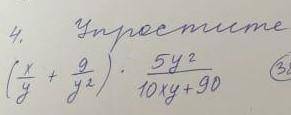 4. Упростите
(x/y + 9/y²) · 5y²/(10xy + 90)